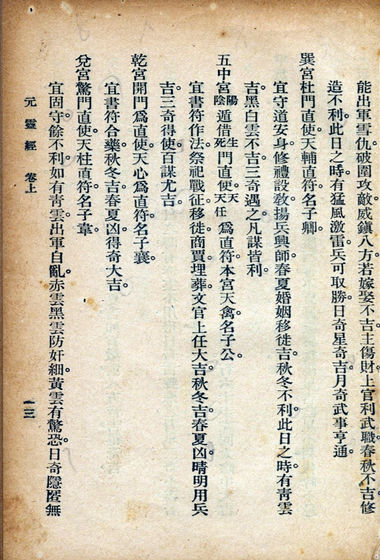 能出軍雪仇破圍攻敵威鎮八方若嫁娶不吉主傷財上官利武職春秋不吉修
造不利。此日之時有猛風激雷兵可取勝。日奇星奇吉月奇武事亨通
巽宮杜門直使。天輔直符名子卿。
宜守道安身修禮設教揚兵興師春夏婚姻移徙吉秋冬不利此日之時有青雲
吉。黑白雲不吉三奇遇之凡謀皆利
五中宮陽陰遁借生死門直使天天任為直符本宮天禽名子公
宜書符作法。祭祀戰征移徙商賈埋葬文官上任大吉秋冬吉春夏凶。晴明用兵
吉。三奇得使。百謀尤吉。
乾宮開門為直使天心為直符名子襄
宜書符合藥秋冬吉春夏凶得奇大吉
兌宮驚門直使。天柱直符。名子韋
宜固守。餘不利。如有青雲出軍自亂。赤雲黑雲防奸細。黃雲有驚恐。日奇隱匿無
元靈經 卷上 一三